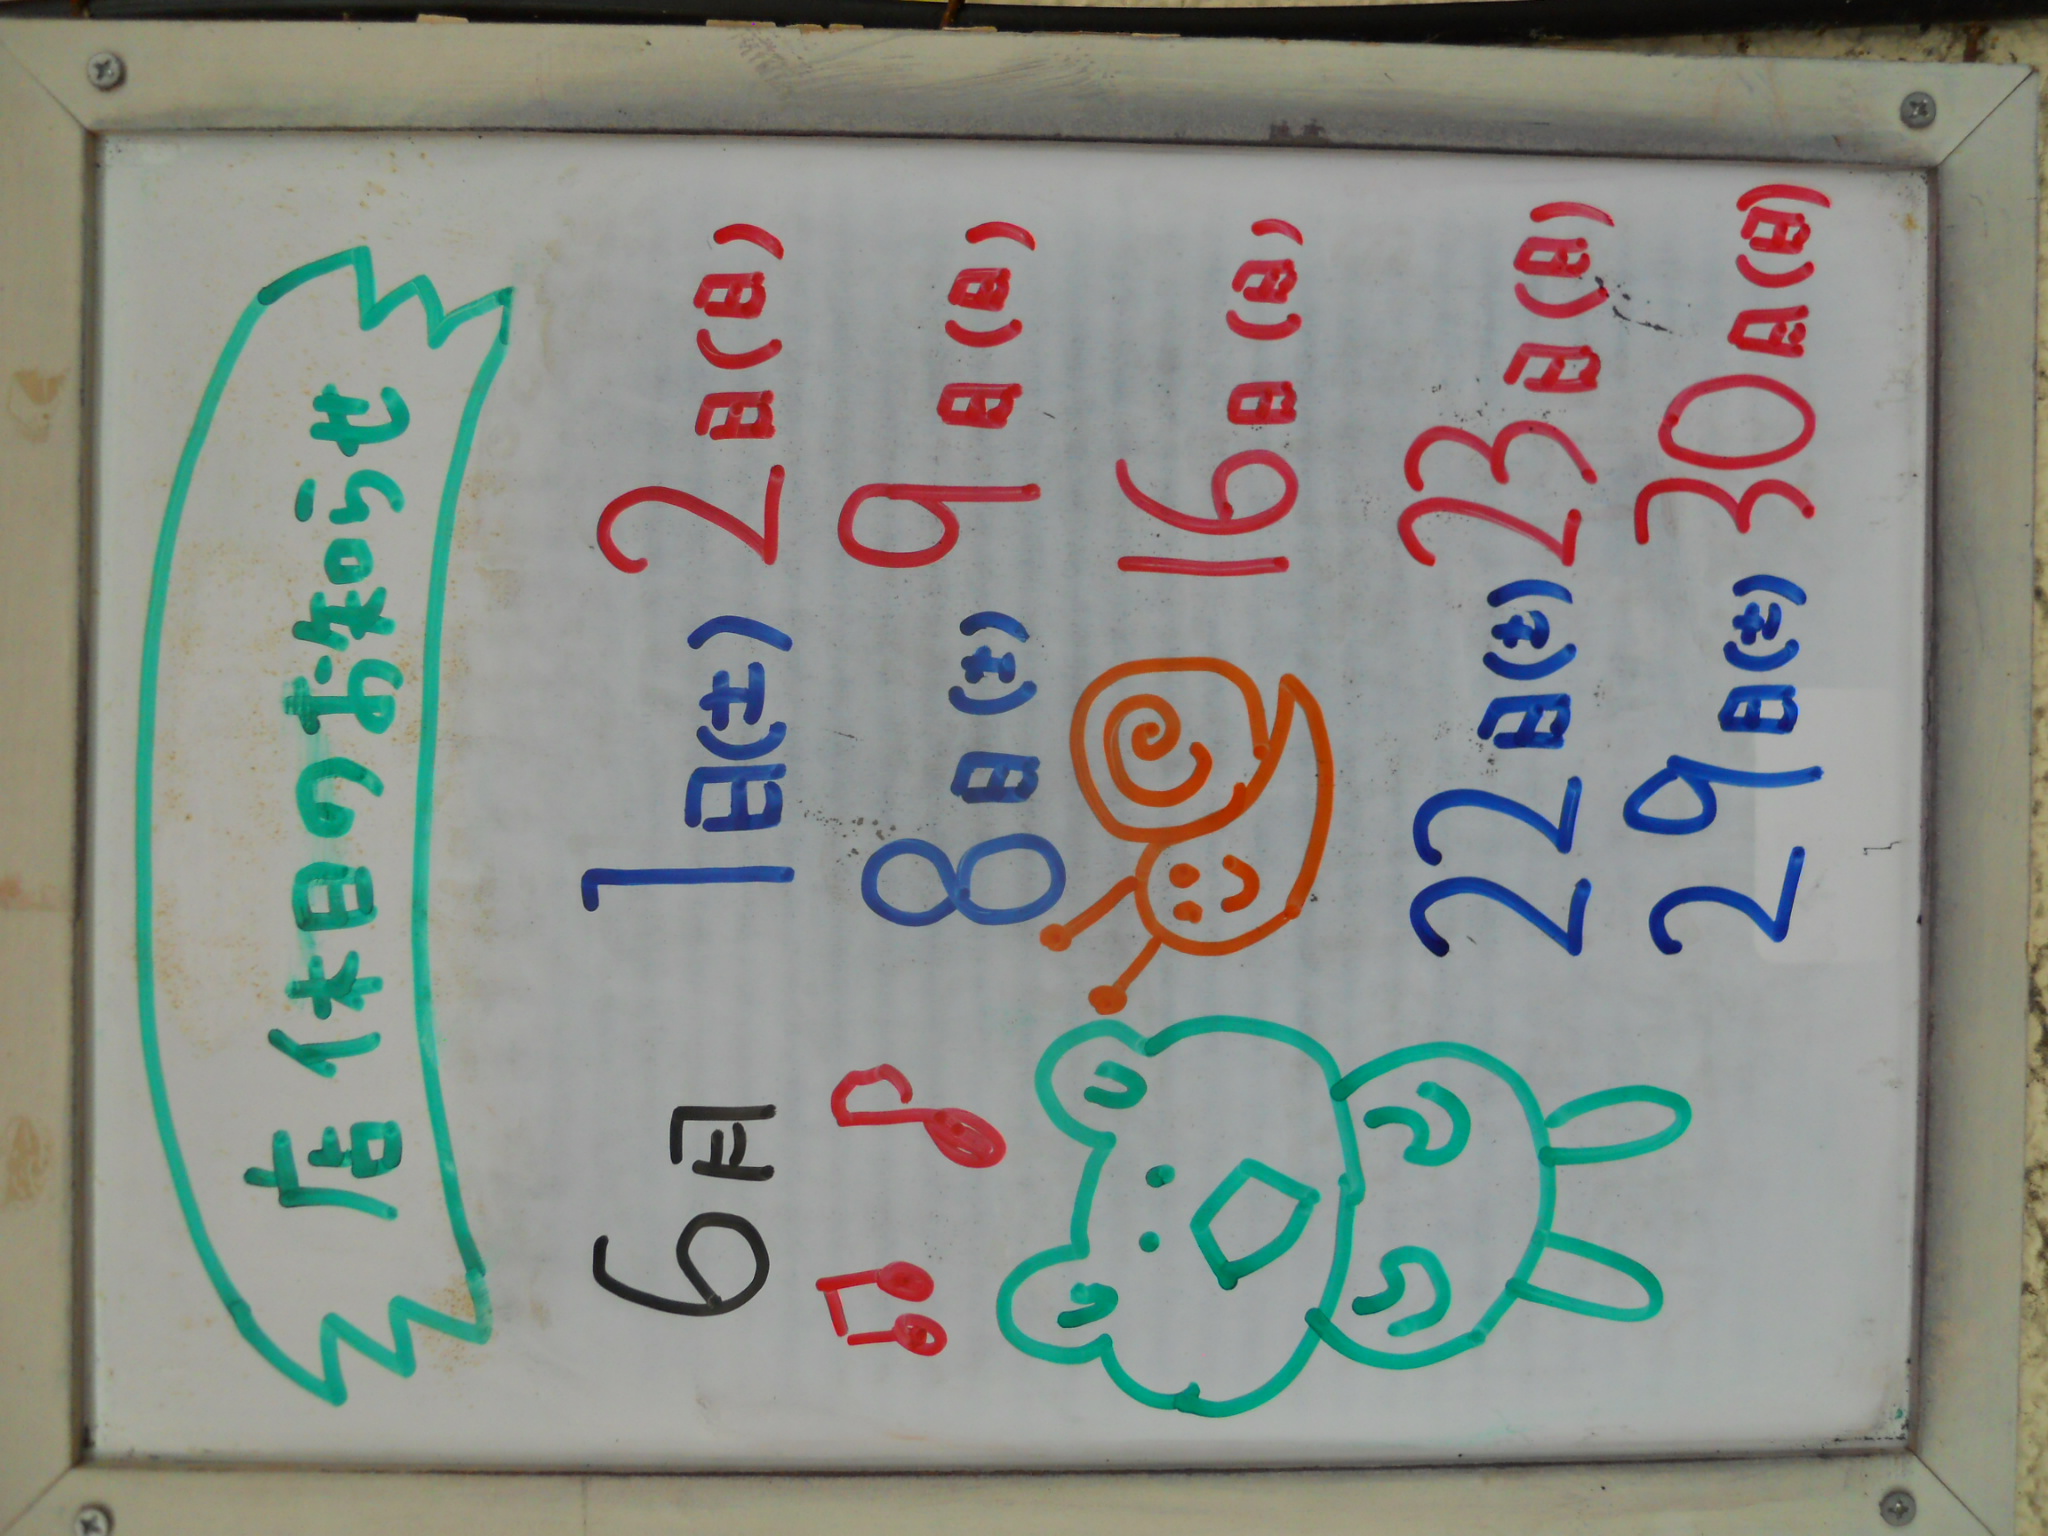 店休日のお知らせ
6月 1日(土) 2日(日)
8日(土) 9日(日)
16日(日)
22日(土) 23日(日)
29日(土) 30日(日)